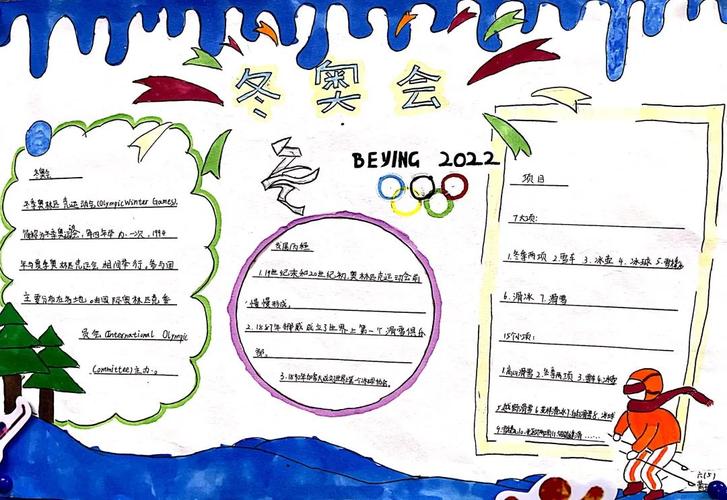 冬奥会
BEIJING 2022
冬奥会
冬季奥林匹克运动会(Olympic Winter Games),
简称为冬季奥运会,每四年举办一次,1994
年与夏季奥林匹克运动会相间举行,参与国
主要分布在各地。由国际奥林匹克委
员会(International Olympic
Committee)主办。
发展历程
1.19世纪末和20世纪初,奥林匹克运动会前
慢慢形成。
2.1887年挪威成立了世界上第一个滑雪俱乐
部。
3.1890年加拿大成立世界上第一个冰球协会。
项目
7大项:
1.冬季两项 2.雪车 3.冰壶 4.冰球 5.雪橇
6.滑冰 7.滑雪
15个小项:
1.高山滑雪 2.冬季两项 3.雪车 4.冰壶
5.越野滑雪 6.花样滑冰 7.自由式滑雪 8.冰球
六(5)